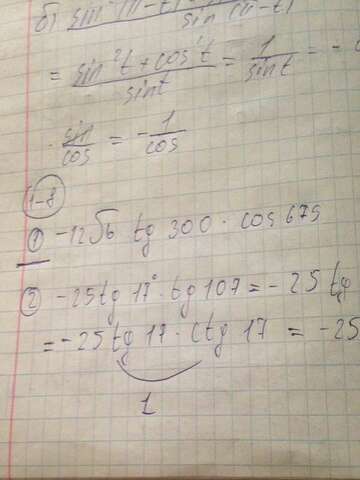 б)
= sin²t + cos²t / sint = 1 / sint = -
sin / cos = - 1 / cos
1-8
① -12√6 tg 300 · cos 675
② -25tg 17° · tg 107 = -25 tg
= -25 tg 17 · ctg 17 = -25
1